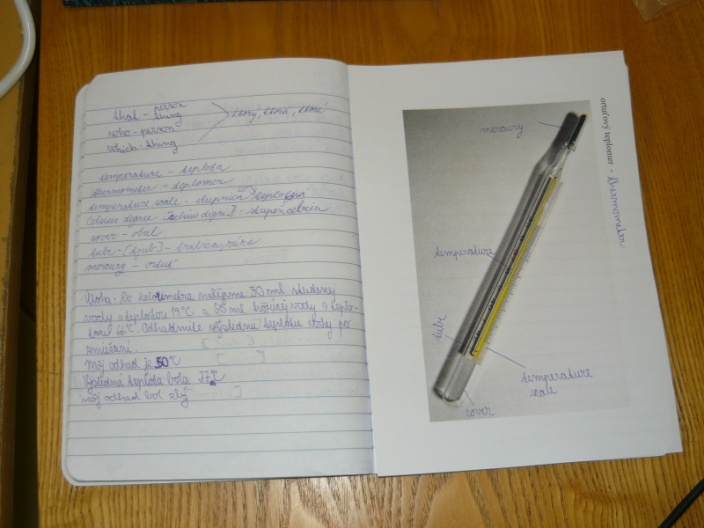 that - person
thing
who - person
which - thing
ktorý, ktorá, ktoré
temperature - teplota
thermometer - teplomer
temperature scale - stupnica teplotná
Celsius degree - stupeň celzia
cover - obal
tube - [tjub] - trubica, rúra
mercury - ortuť
Úloha: Do kalorimetra nalejeme 30 ml studenej
vody s teplotou 19°C a 85 ml horúcej vody o teplo-
tou 66°C. Odhadnite výslednú teplotu vody po
zmiešaní.
Môj odhad je 50°C
Výsledná teplota bola 37°C
môj odhad bol zlý
ortuťový teplomer - thermometer
mercury
temperature
tube
temperature
scale
cover